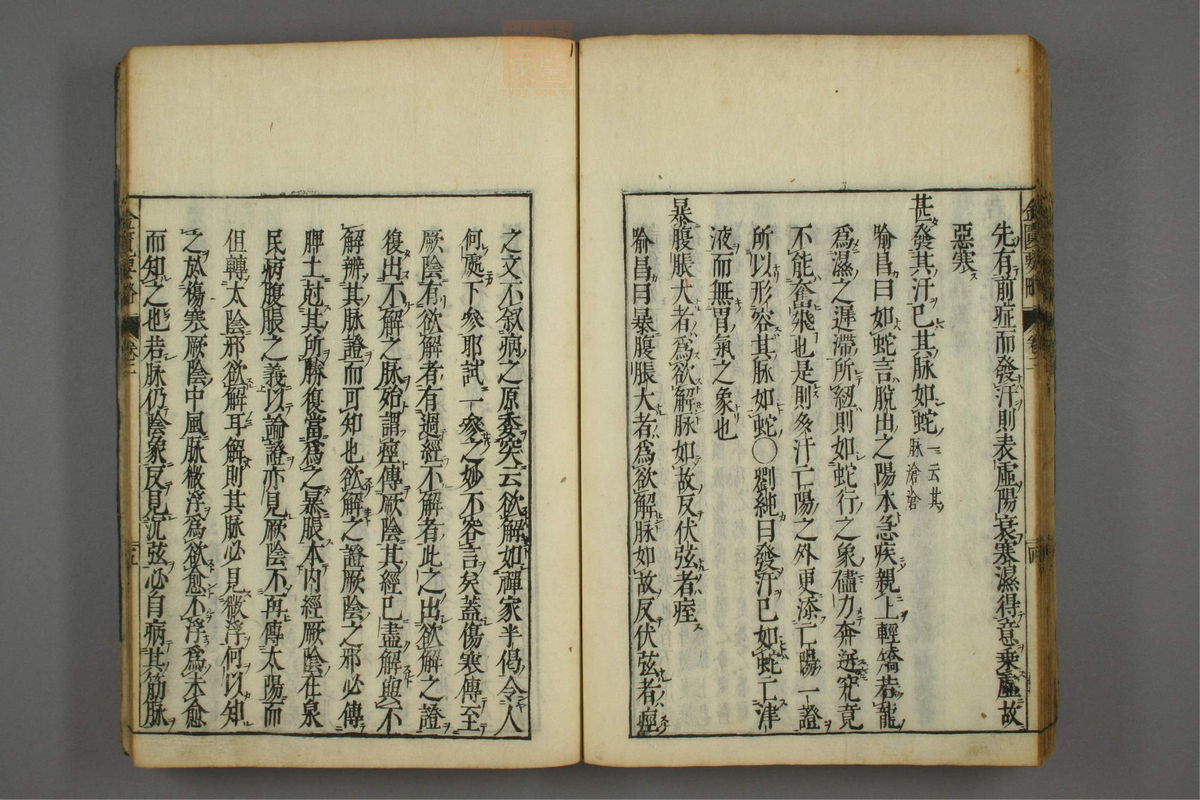 先有前症而發汗則表虛陽衰寒濕得意乘虛故
惡寒
甚發其汗已其脉如蛇一云其脉滄滄
喻昌曰如蛇言脫出之陽本急疾親上輕矯若龍
爲濕之遲滯所紐則如蛇行之象儘力奔迸究竟
不能奮飛也是則多汗亡陽之外更添亡陽一證
所以形容其脉如蛇○劉純曰發汗已如蛇亡津
液而無胃氣之象也
暴腹脹大者爲欲解脉如故反伏弦者痙
喻昌曰暴腹脹大者爲欲解脉如故反伏弦者痙
之文不叙病之原委突云欲解如禪家半偈令人
何處下參耶試一參之妙不容言矣蓋傷寒傳至
厥陰有欲解者有過經不解者此之出欲解之證
復出不解之脉始謂痙傳厥陰其經已盡解與不
解辨其脉證而可知也欲解之證厥陰之邪必傳
脾土尅其所勝腹當爲之暴脹本内經厥陰在泉
民病腹脹之義以論證亦見厥陰不再傳太陽而
但轉太陰邪欲解耳解則其脉必見微浮何以知
之於傷寒厥陰中風脉微浮爲欲愈不浮爲未愈
而知之也若脉仍陰象反見沉弦必自病其筋脉